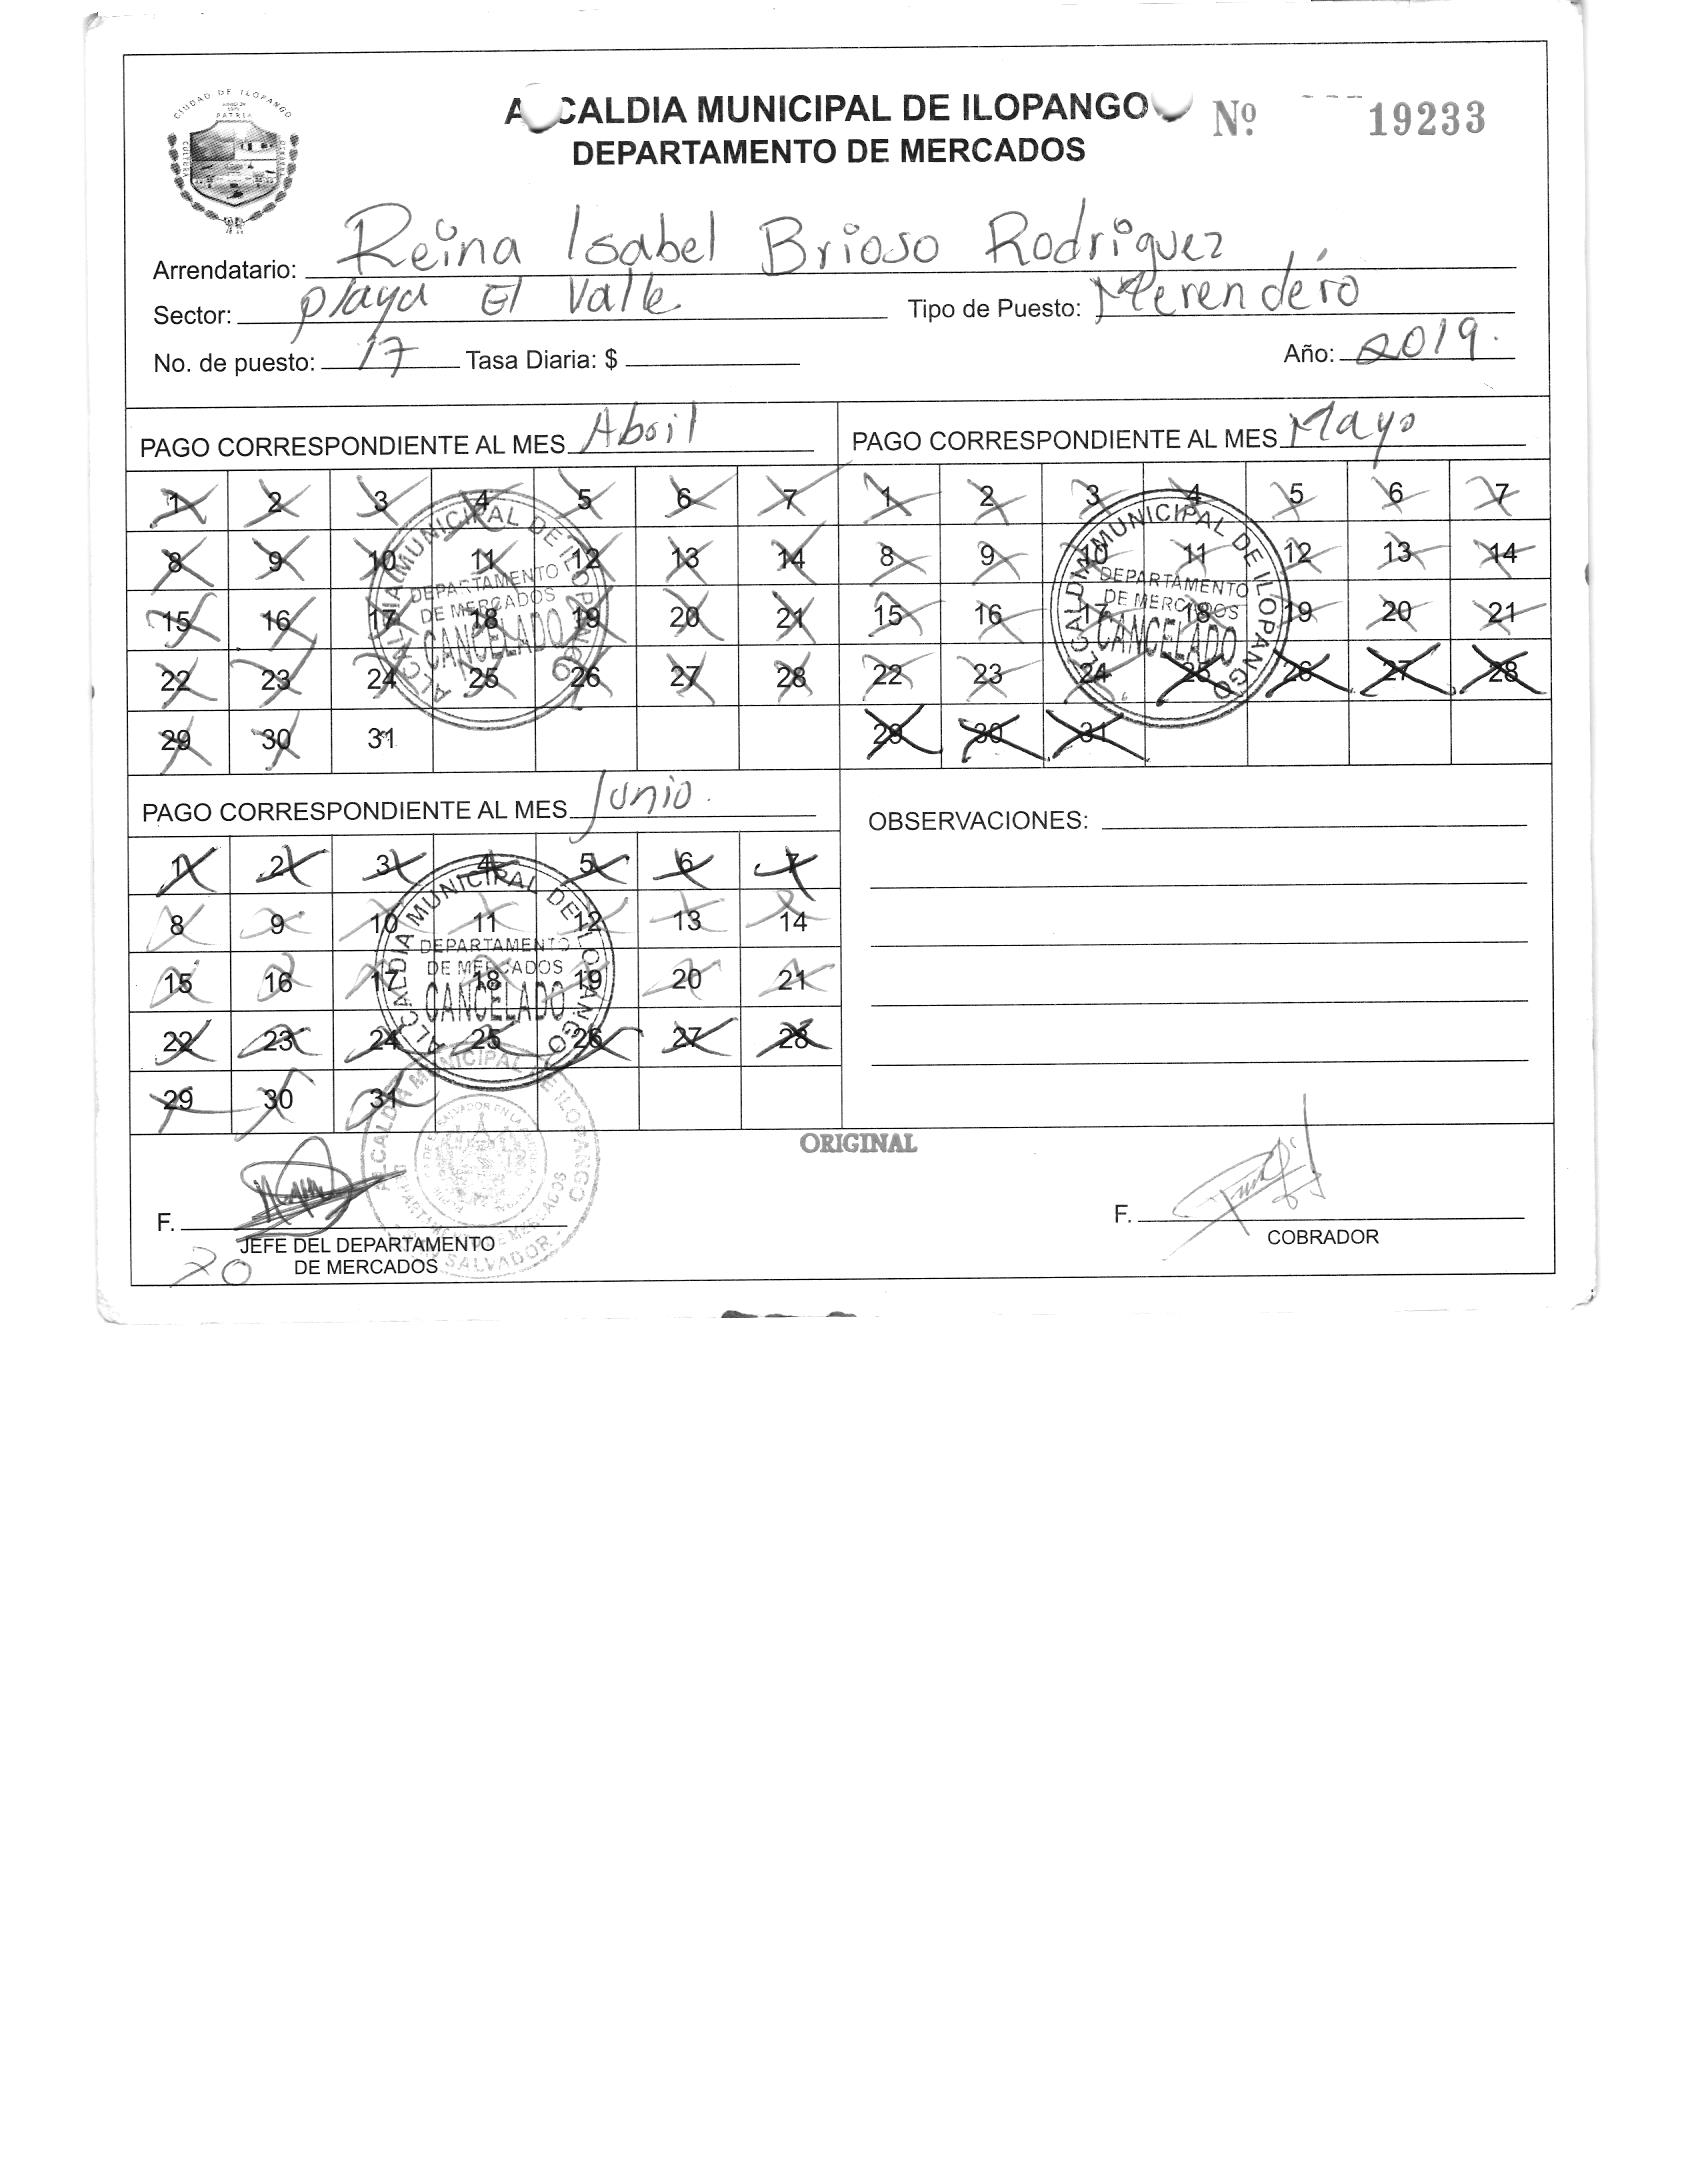 CIUDAD DE ILOPANGO
PATRIA
CULTURA
ALCALDIA MUNICIPAL DE ILOPANGO
Nº 19233
DEPARTAMENTO DE MERCADOS
Arrendatario: Reina Isabel Brioso Rodriguez
Sector: Playa El Valle Tipo de Puesto: Merendero
No. de puesto: 17 Tasa Diaria: $ Año: 2019.
PAGO CORRESPONDIENTE AL MES Abril
1 2 3 4 5 6 7
8 9 10 11 12 13 14
15 16 17 18 19 20 21
22 23 24 25 26 27 28
29 30 31
ALCALDIA MUNICIPAL DE ILOPANGO
DEPARTAMENTO
DE MERCADOS
CANCELADO
PAGO CORRESPONDIENTE AL MES Mayo
1 2 3 4 5 6 7
8 9 10 11 12 13 14
15 16 17 18 19 20 21
22 23 24 25 26 27 28
29 30 31
ALCALDIA MUNICIPAL DE ILOPANGO
DEPARTAMENTO
DE MERCADOS
CANCELADO
PAGO CORRESPONDIENTE AL MES Junio.
1 2 3 4 5 6 7
8 9 10 11 12 13 14
15 16 17 18 19 20 21
22 23 24 25 26 27 28
29 30 31
ALCALDIA MUNICIPAL DE ILOPANGO
DEPARTAMENTO
DE MERCADOS
CANCELADO
OBSERVACIONES:
ORIGINAL
ALCALDIA MUNICIPAL DE ILOPANGO
DEPARTAMENTO DE MERCADOS
SAN SALVADOR
F.
JEFE DEL DEPARTAMENTO
DE MERCADOS
20
F.
COBRADOR